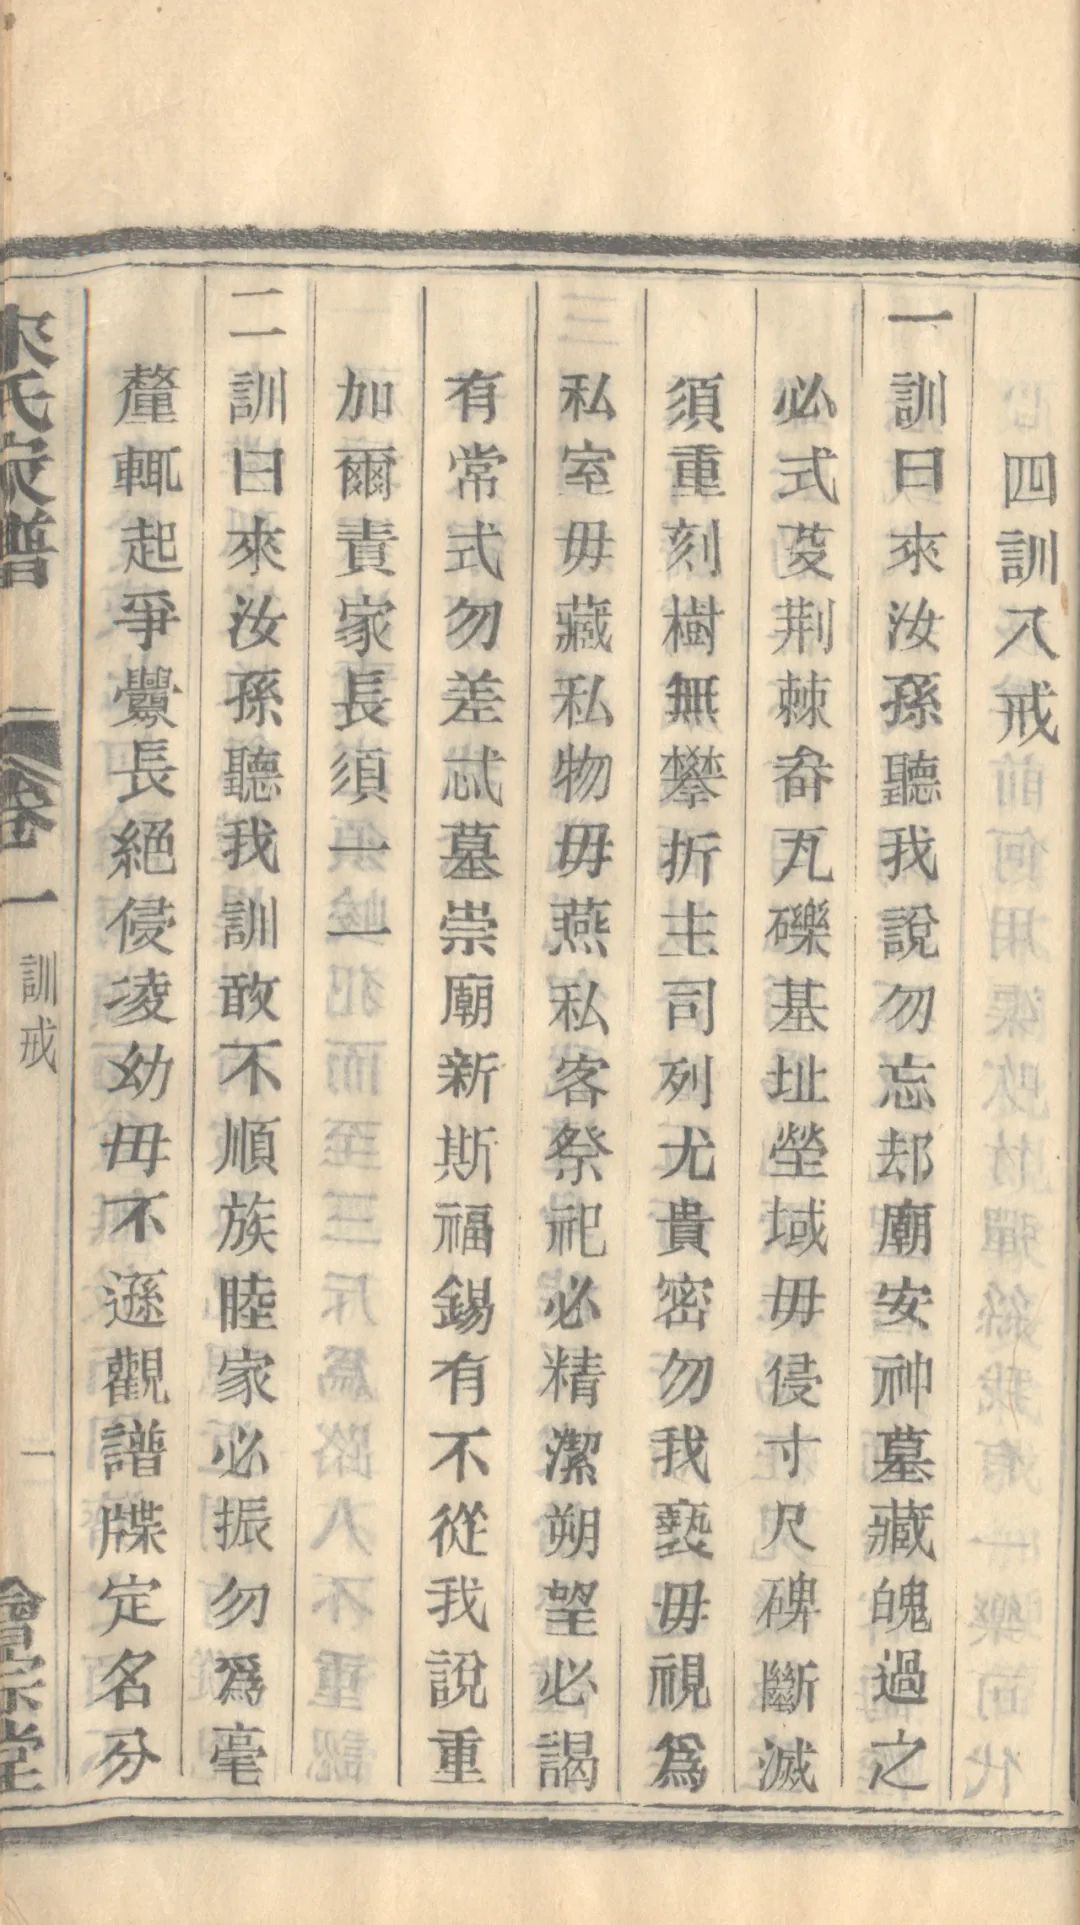 四訓八戒
一訓曰來汝孫聽我說勿忘却廟安神墓藏魄過之
必式芟荆棘畚瓦礫基址塋域毋侵寸尺碑斷滅
須重刻樹無攀折主司列尤貴密勿我褻毋視為
私室毋藏私物毋燕私客祭祀必精潔朔望必謁
有常式勿差忒墓崇廟新斯福錫有不從我說重
加爾責家長須一一
二訓曰來汝孫聽我訓敢不順族睦家必振勿爲毫
釐輒起爭釁長絕侵凌幼毋不遜觀譜牒定名分
氏家譜
卷一
訓戒
二
會宗堂